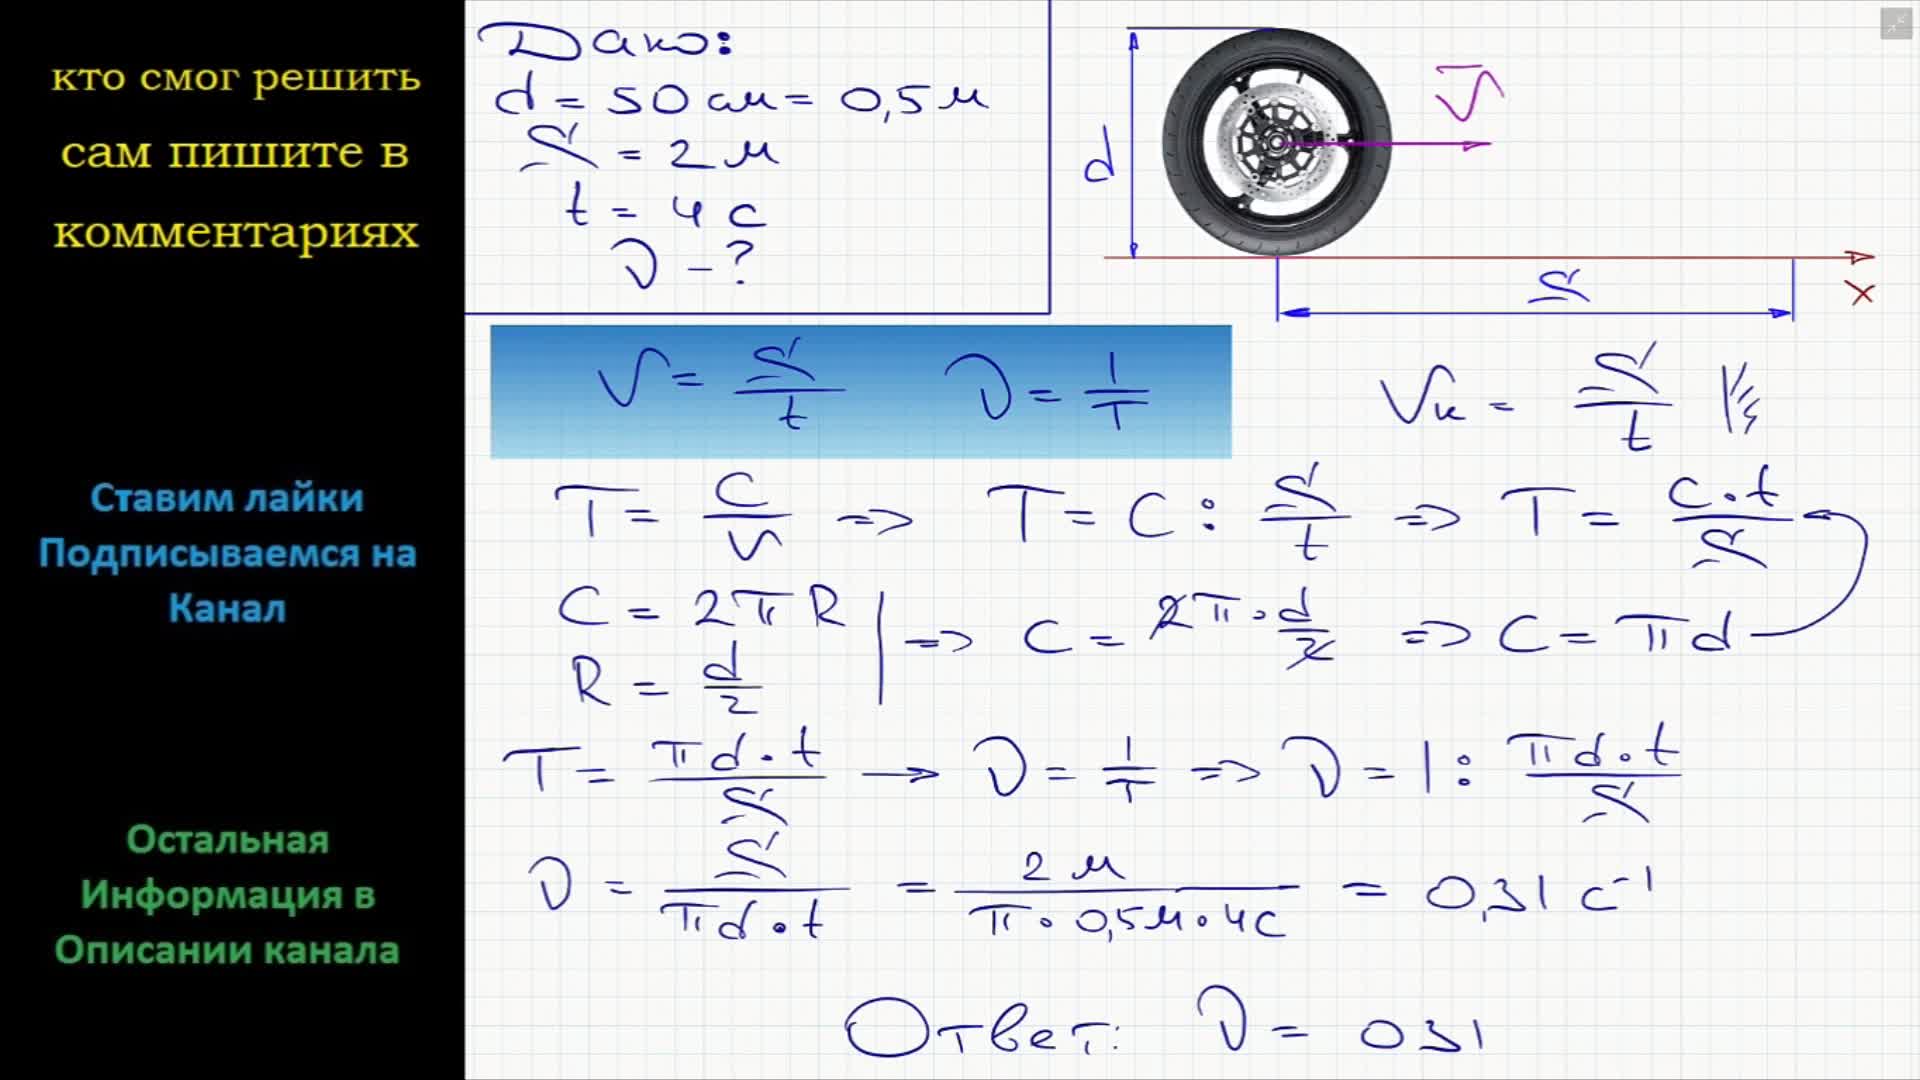 кто смог решить
сам пишите в
комментариях
Ставим лайки
Подписываемся на
Канал
Остальная
Информация в
Описании канала
Дано:
d = 50 см = 0,5 м
S = 2 м
t = 4 с
ν - ?
d
V
S
x
V = S/t ν = 1/T
Vк = S/t
T = C/V => T = C : S/t => T = C·t/S
C = 2πR
R = d/2
=> C = 2π·d/2 => C = πd
T = πd·t/S → ν = 1/T => ν = 1 : πd·t/S
ν = S/πd·t = 2 м/π·0,5м·4с = 0,31 с⁻¹
Ответ: ν = 031